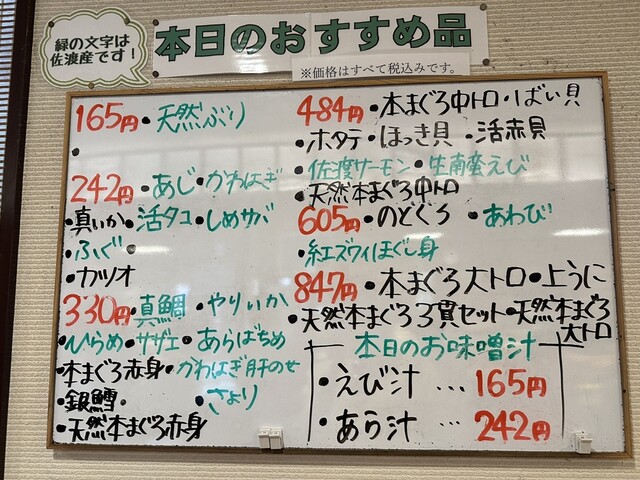 緑の文字は
佐渡産です！
本日のおすすめ品
※価格はすべて税込みです。
165円・天然ぶり
・
242円・あじ・かわはぎ
・真いか・活タコ・しめサバ
・ふぐ・
・カツオ
330円・真鯛・やりいか
・ひらめ・サザエ・あらばちめ
・本まぐろ赤身・かわはぎ肝のせ
・銀鱈・・さより
・天然本まぐろ赤身
484円・本まぐろ中トロ・ばい貝
・ホタテ・ほっき貝・活赤貝
・佐渡サーモン・生南蛮えび
・天然本まぐろ中トロ
605円・のどくろ・あわび
・紅ズワイほぐし身
847円・本まぐろ大トロ・上うに
・天然本まぐろ3貫セット・天然本まぐろ
大トロ
本日のお味噌汁
・えび汁…165円
・あら汁…242円